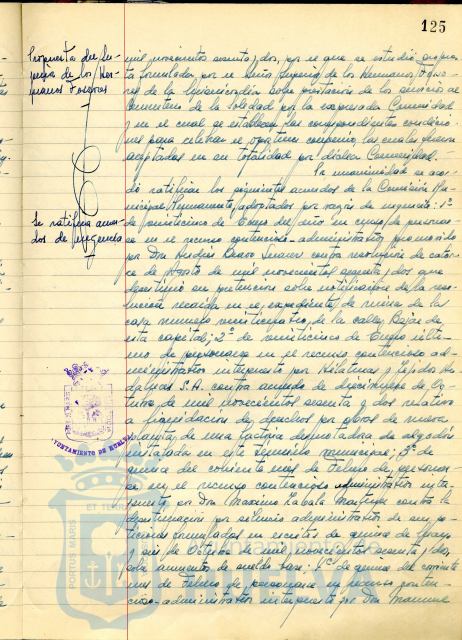 125
Propuesta del Su-
perior de los Her-
manos Fosores
Se ratifica acuer-
dos de urgencia
mil novecientos sesenta y dos, por el que se estudió propues-
ta formulada por el Superior de los Hermanos Foso-
res de la Misericordia sobre prestación de los servicios al
Cementerio de la Soledad por la expresada Comunidad
y en el cual se establecen las correspondientes condicio-
nes para celebrar el oportuno convenio, las cuales fueron
aceptadas en su totalidad por dicha Comunidad.
Por unanimidad se acor-
dó ratificar los siguientes acuerdos de la Comisión Mu-
nicipal Permanente, adoptados por razón de urgencia: 1º
de veinticinco de Enero del año en curso, de personar-
se en el recurso contencioso-administrativo promovido
por Don Andrés Bravo contra resolución de cator-
ce de Agosto de mil novecientos sesenta y dos que
desestimó su pretensión sobre notificación de la reso-
lución recaída en el expediente de ruina de la
casa número veinticuatro de la calle Bejar de
esta capital; 2º de veinticinco de Enero últi-
mo de personarse en el recurso contencioso ad-
ministrativo interpuesto por Hilaturas y Tejidos An-
daluces S.A. contra acuerdo de diecinueve de Oc-
tubre de mil novecientos sesenta y dos relativo
a liquidación de derechos por obras de nueva
planta de una factoría desmotadora de algodón
instalada en este término municipal; 3º de
quince del corriente mes de Febrero de personar-
se en el recurso contencioso administrativo inter-
puesto por Don Maximo Zabala contra la
desestimación por silencio administrativo de sus pe-
ticiones formuladas en escritos de quince de
y seis de Octubre de mil novecientos sesenta y dos
sobre aumento de sueldo base; 4º de quince del corriente
mes de Febrero de personarse en recurso conten-
cioso-administrativo interpuesto por Don Manuel
AYUNTAMIENTO DE HUELVA
PORTUS MARIS
ET TERRAE